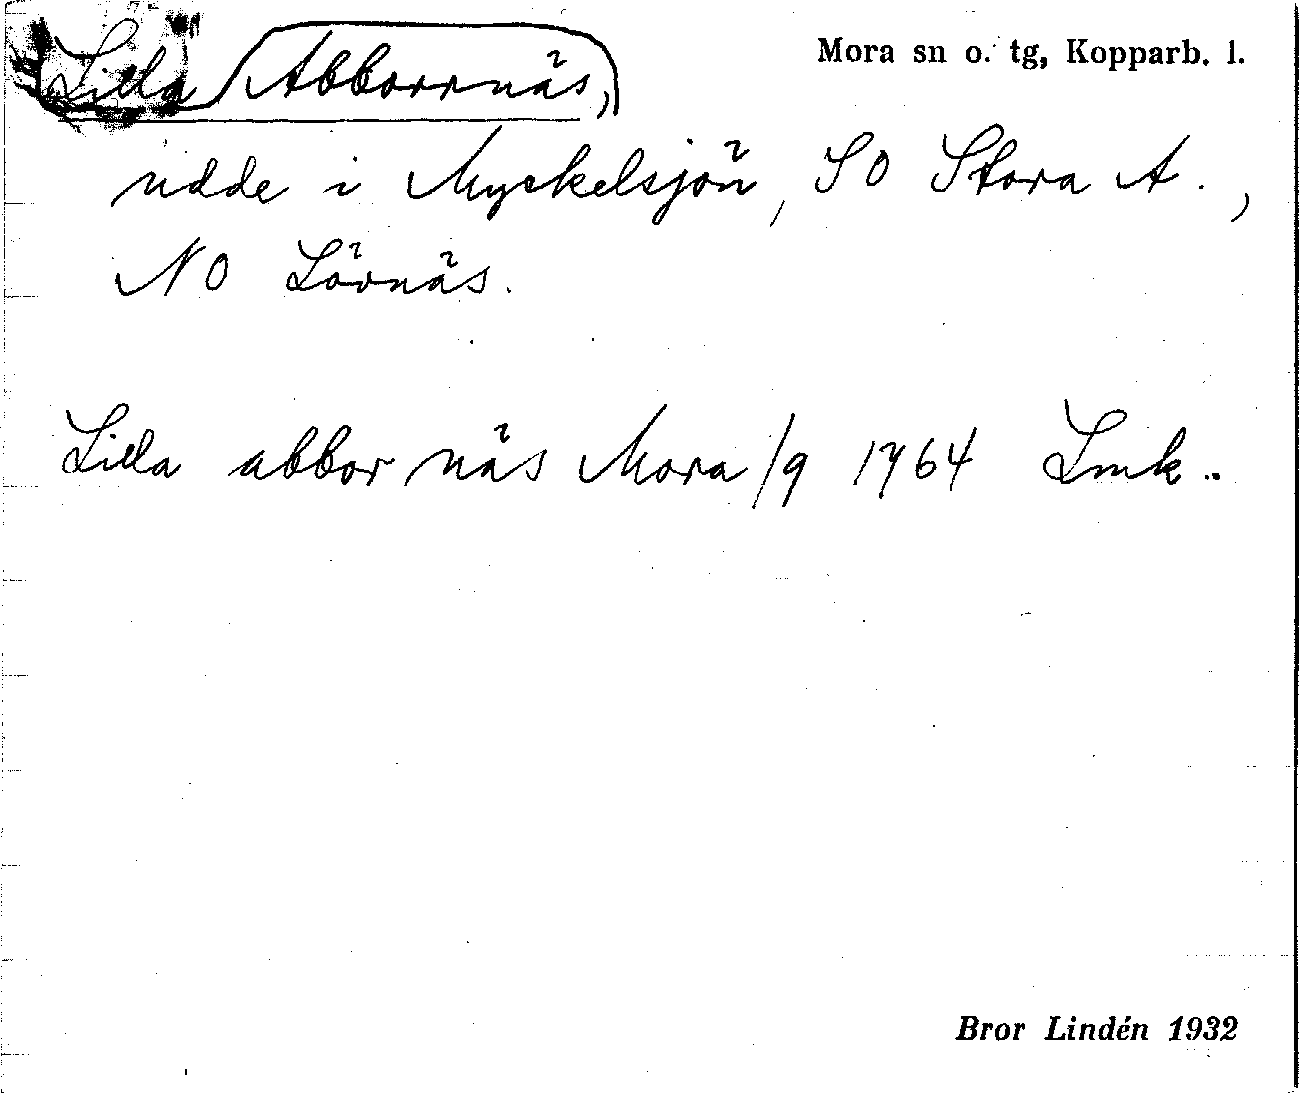 Lilla Abborrnäs,
Mora sn o. tg, Kopparb. l.
udde i Myckelsjön, SO Stora A.,
NO Lövnäs.
Lilla abbor näs Mora/9 1764 Lmk..
Bror Lindén 1932